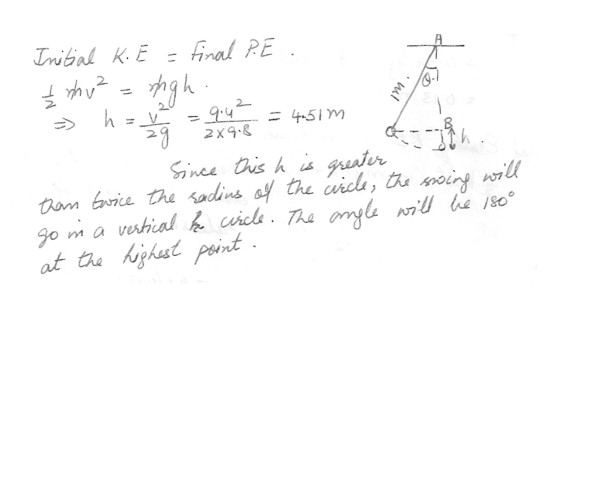 Initial K.E = Final P.E.
1/2 mv² = mgh.
⇒ h = v²/2g = 9.4²/2×9.8 = 4.51m
A
θ
1m.
B
h.
Since this h is greater
than twice the radius of the circle, the swing will
go in a vertical circle. The angle will be 180°
at the highest point.